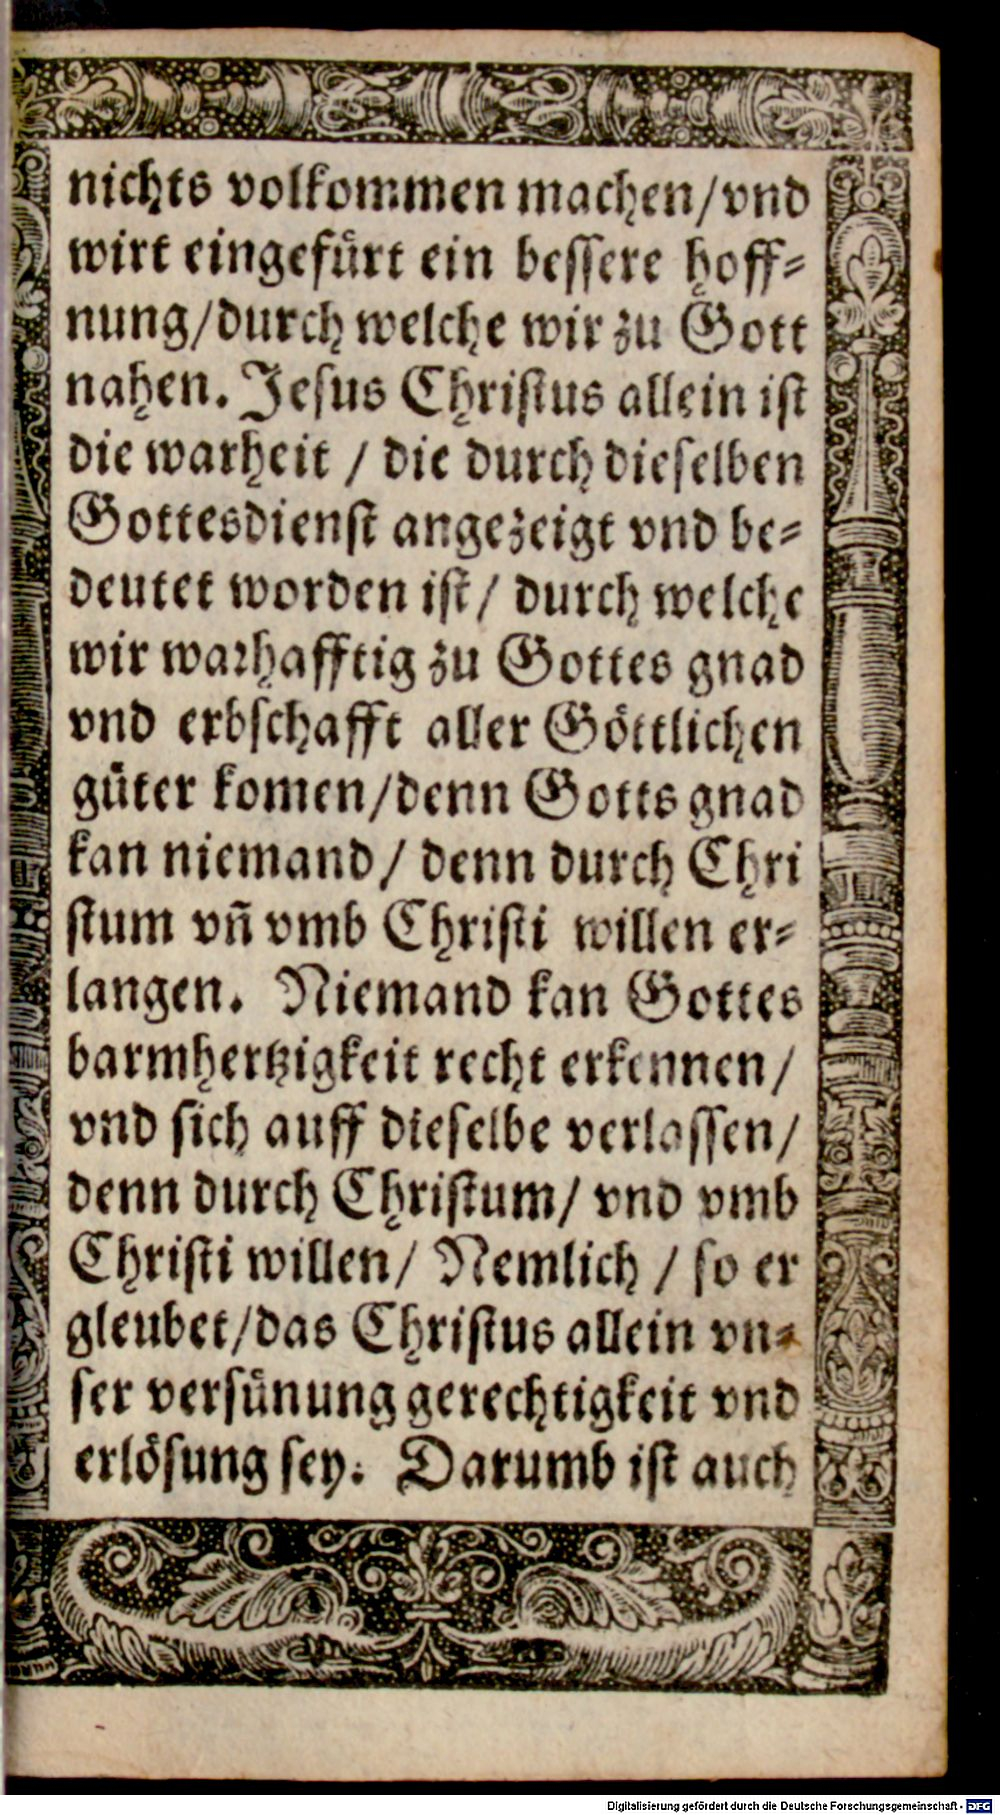 nichts volkommen machen/vnd
wirt eingefürt ein bessere hoff-
nung/durch welche wir zu Gott
nahen. Jesus Christus allein ist
die warheit / die durch dieselben
Gottesdienst angezeigt vnd be-
deutet worden ist/ durch welche
wir warhafftig zu Gottes gnad
vnd erbschafft aller Göttlichen
güter komen/denn Gotts gnad
kan niemand/ denn durch Chri
stum vñ vmb Christi willen er-
langen. Niemand kan Gottes
barmhertzigkeit recht erkennen/
vnd sich auff dieselbe verlassen/
denn durch Christum/ vnd vmb
Christi willen/ Nemlich / so er
gleubet/das Christus allein vn-
ser versünung gerechtigkeit vnd
erlösung sey. Darumb ist auch
Digitalisierung gefördert durch die Deutsche Forschungsgemeinschaft - DFG